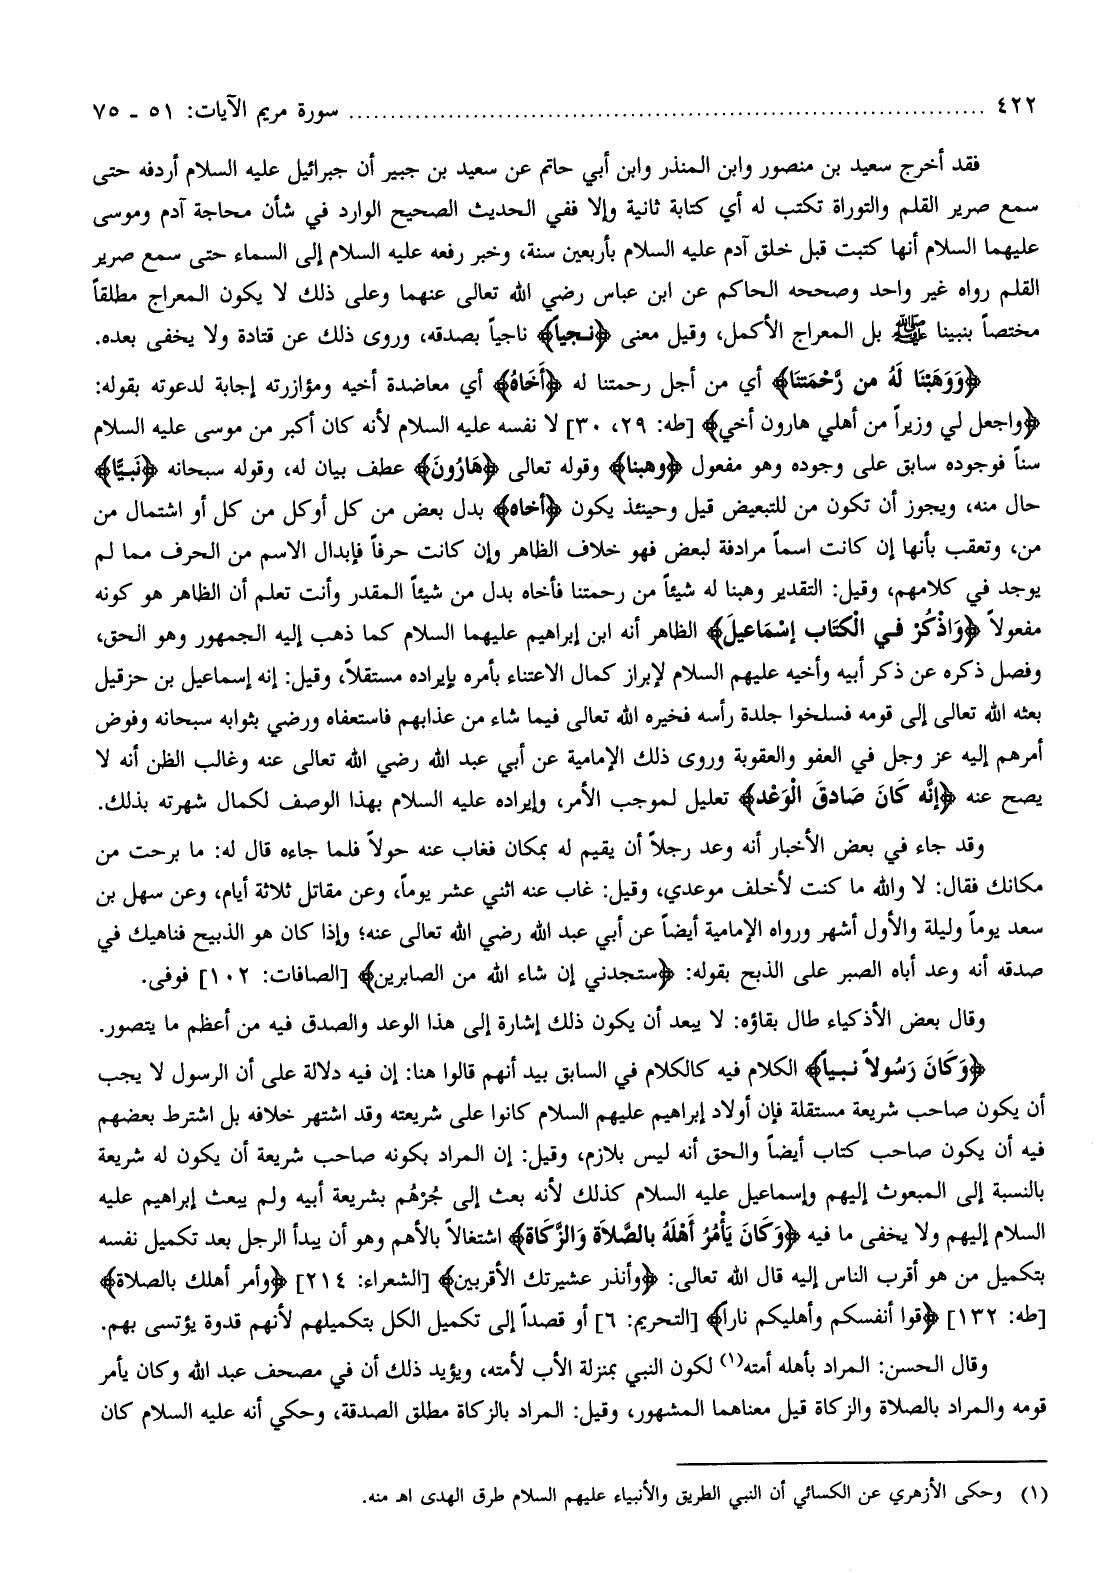 ٤٢٢ ........................................ سورة مريم الآيات: ٥١ - ٧٥
فقد أخرج سعيد بن منصور وابن المنذر وابن أبي حاتم عن سعيد بن جبير أن جبرائيل عليه السلام أردفه حتى
سمع صرير القلم والتوراة تكتب له أي كتابة ثانية وإلا ففي الحديث الصحيح الوارد في شأن محاجة آدم وموسى
عليهما السلام أنها كتبت قبل خلق آدم عليه السلام بأربعين سنة، وخبر رفعه عليه السلام إلى السماء حتى سمع صرير
القلم رواه غير واحد وصححه الحاكم عن ابن عباس رضي الله تعالى عنهما وعلى ذلك لا يكون المعراج مطلقاً
مختصاً بنبينا ﷺ بل المعراج الأكمل، وقيل معنى ﴿نجياً﴾ ناجياً بصدقه، وروى ذلك عن قتادة ولا يخفى بعده.
﴿وَوَهَبْنَا لَهُ من رَّحْمَتنَا﴾ أي من أجل رحمتنا له ﴿أَخَاهُ﴾ أي معاضدة أخيه ومؤازرته إجابة لدعوته بقوله:
﴿واجعل لي وزيراً من أهلي هارون أخي﴾ [طه: ٢٩، ٣٠] لا نفسه عليه السلام لأنه كان أكبر من موسى عليه السلام
سناً فوجوده سابق على وجوده وهو مفعول ﴿وهبنا﴾ وقوله تعالى ﴿هَارُونَ﴾ عطف بيان له، وقوله سبحانه ﴿نَبيًّا﴾
حال منه، ويجوز أن تكون من للتبعيض قيل وحينئذ يكون ﴿أخاه﴾ بدل بعض من كل أوكل من كل أو اشتمال من
من، وتعقب بأنها إن كانت اسماً مرادفة لبعض فهو خلاف الظاهر وإن كانت حرفاً فإبدال الاسم من الحرف مما لم
يوجد في كلامهم، وقيل: التقدير وهبنا له شيئاً من رحمتنا فأخاه بدل من شيئاً المقدر وأنت تعلم أن الظاهر هو كونه
مفعولاً ﴿وَاذْكُرْ فـي الْكتَاب إسْمَاعيلَ﴾ الظاهر أنه ابن إبراهيم عليهما السلام كما ذهب إليه الجمهور وهو الحق،
وفصل ذكره عن ذكر أبيه وأخيه عليهم السلام لإبراز كمال الاعتناء بأمره بإيراده مستقلاً، وقيل: إنه إسماعيل بن حزقيل
بعثه الله تعالى إلى قومه فسلخوا جلدة رأسه فخيره الله تعالى فيما شاء من عذابهم فاستعفاه ورضي بثوابه سبحانه وفوض
أمرهم إليه عز وجل في العفو والعقوبة وروى ذلك الإمامية عن أبي عبد الله رضي الله تعالى عنه وغالب الظن أنه لا
يصح عنه ﴿إنَّه كَانَ صَادقَ الْوَعْد﴾ تعليل لموجب الأمر، وإيراده عليه السلام بهذا الوصف لكمال شهرته بذلك.
وقد جاء في بعض الأخبار أنه وعد رجلاً أن يقيم له بمكان فغاب عنه حولاً فلما جاءه قال له: ما برحت من
مكانك فقال: لا والله ما كنت لأخلف موعدي، وقيل: غاب عنه اثني عشر يوماً، وعن مقاتل ثلاثة أيام، وعن سهل بن
سعد يوماً وليلة والأول أشهر ورواه الإمامية أيضاً عن أبي عبد الله رضي الله تعالى عنه؛ وإذا كان هو الذبيح فناهيك في
صدقه أنه وعد أباه الصبر على الذبح بقوله: ﴿ستجدني إن شاء الله من الصابرين﴾ [الصافات: ١٠٢] فوفى.
وقال بعض الأذكياء طال بقاؤه: لا يبعد أن يكون ذلك إشارة إلى هذا الوعد والصدق فيه من أعظم ما يتصور.
﴿وَكَانَ رَسُولاً نبـياً﴾ الكلام فيه كالكلام في السابق بيد أنهم قالوا هنا: إن فيه دلالة على أن الرسول لا يجب
أن يكون صاحب شريعة مستقلة فإن أولاد إبراهيم عليهم السلام كانوا على شريعته وقد اشتهر خلافه بل اشترط بعضهم
فيه أن يكون صاحب كتاب أيضاً والحق أنه ليس بلازم، وقيل: إن المراد بكونه صاحب شريعة أن يكون له شريعة
بالنسبة إلى المبعوث إليهم وإسماعيل عليه السلام كذلك لأنه بعث إلى جُرْهُم بشريعة أبيه ولم يبعث إبراهيم عليه
السلام إليهم ولا يخفى ما فيه ﴿وَكَانَ يَأْمُرُ أَهْلَهُ بالصَّلاَة وَالزَّكَاة﴾ اشتغالاً بالأهم وهو أن يبدأ الرجل بعد تكميل نفسه
بتكميل من هو أقرب الناس إليه قال الله تعالى: ﴿وأنذر عشيرتك الأقربين﴾ [الشعراء: ٢١٤] ﴿وأمر أهلك بالصلاة﴾
[طه: ١٣٢] ﴿قوا أنفسكم وأهليكم ناراً﴾ [التحريم: ٦] أو قصداً إلى تكميل الكل بتكميلهم لأنهم قدوة يؤتسى بهم.
وقال الحسن: المراد بأهله أمته(١) لكون النبي بمنزلة الأب لأمته، ويؤيد ذلك أن في مصحف عبد الله وكان يأمر
قومه والمراد بالصلاة والزكاة قيل معناهما المشهور، وقيل: المراد بالزكاة مطلق الصدقة، وحكي أنه عليه السلام كان
(١) وحكى الأزهري عن الكسائي أن النبي الطريق والأنبياء عليهم السلام طرق الهدى اهـ منه.